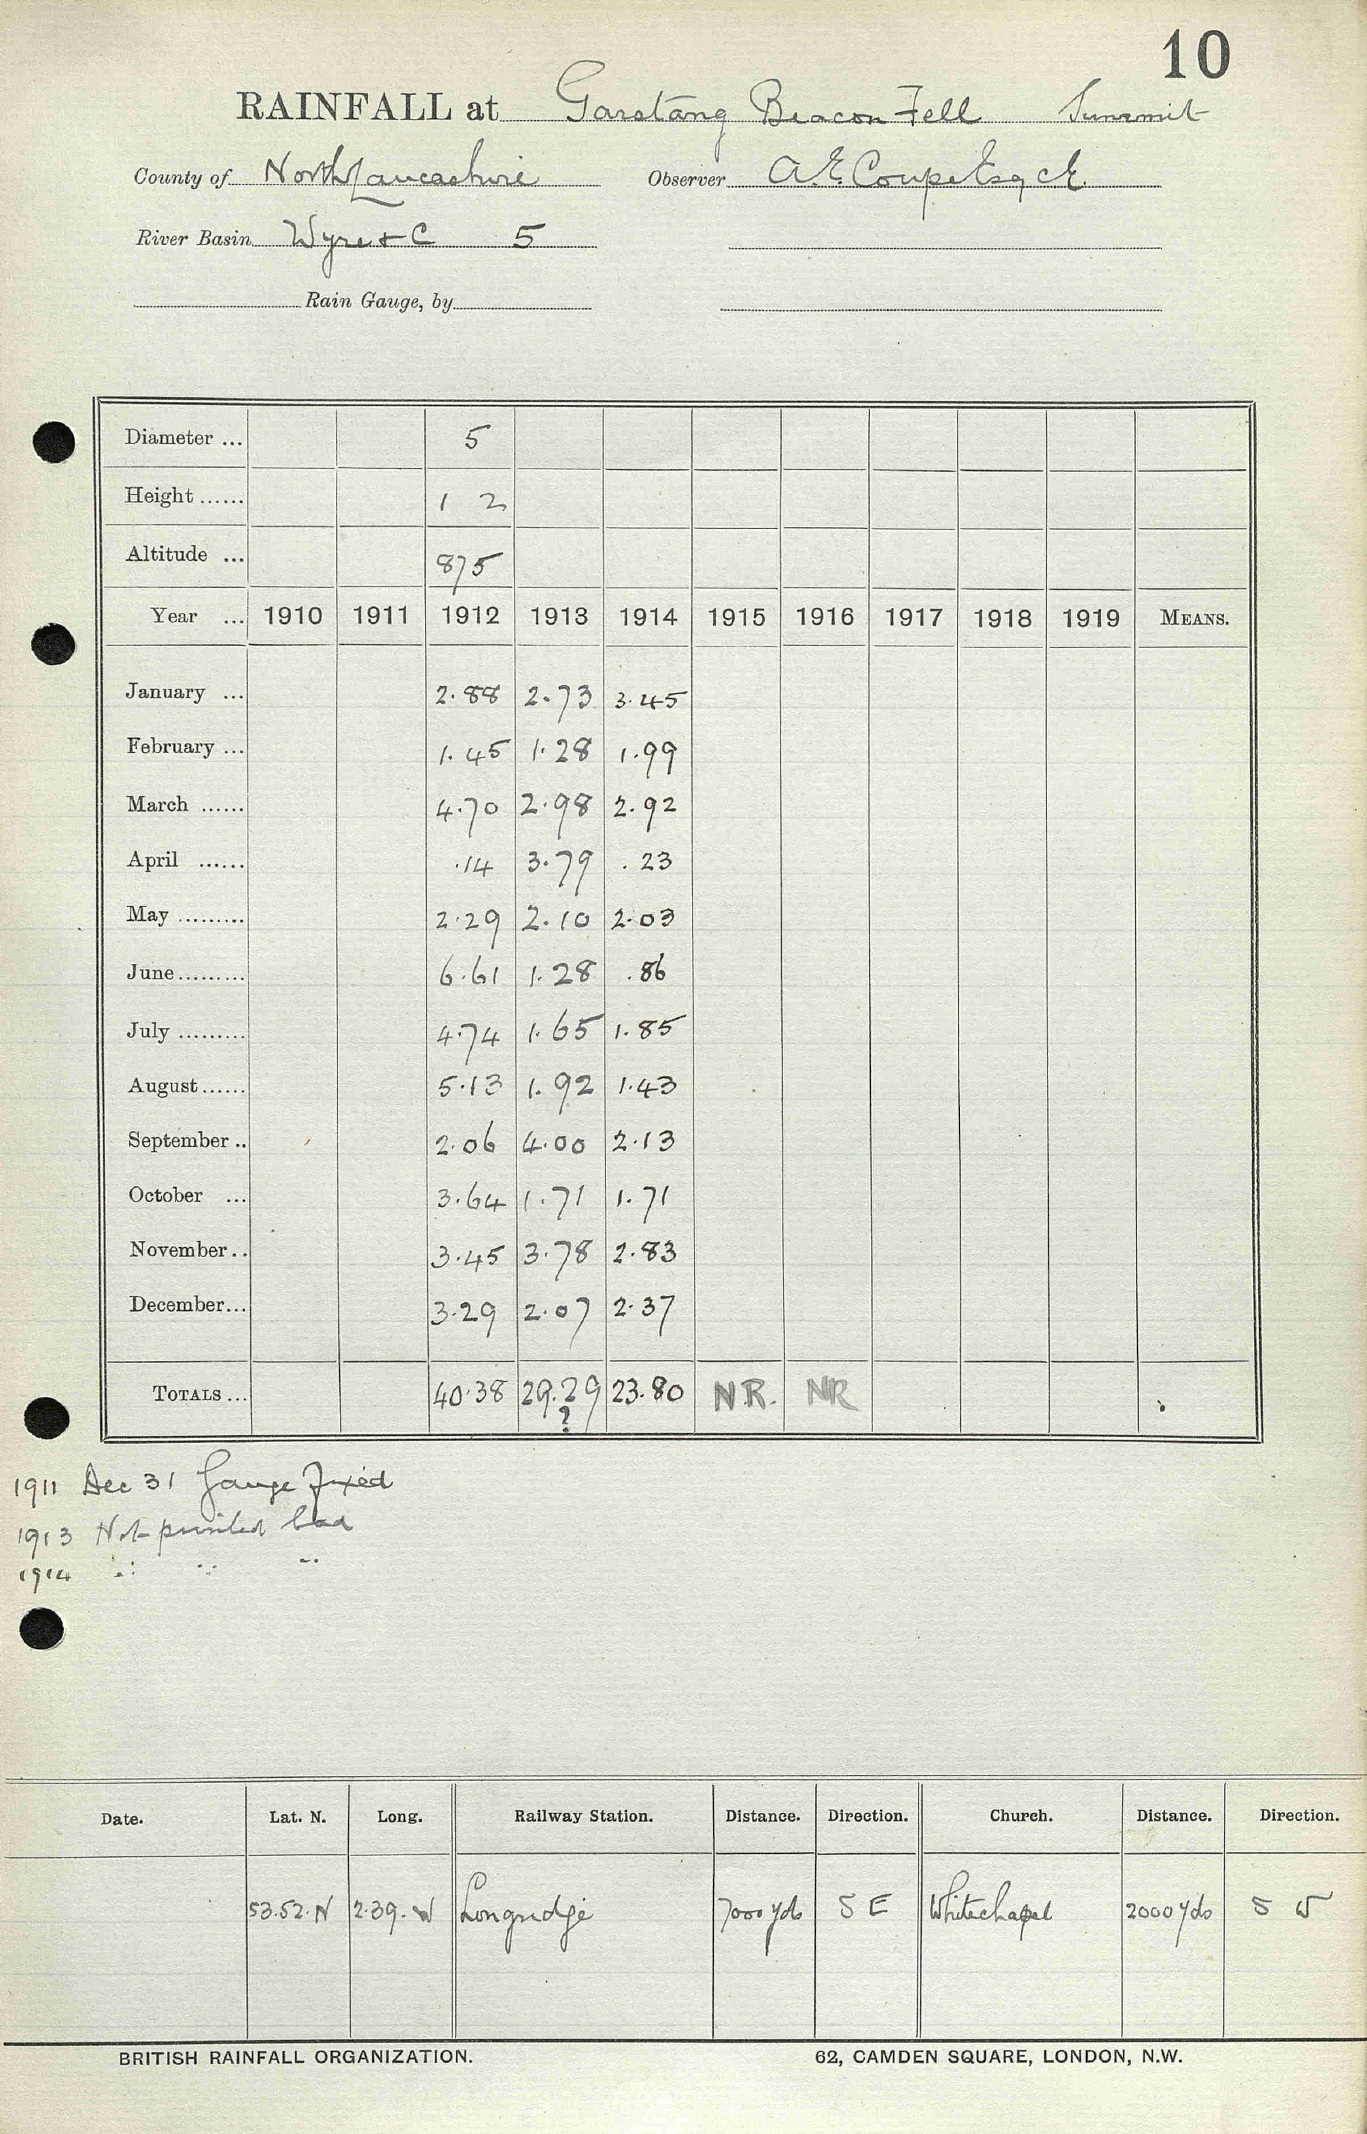 10
RAINFALL at Garstang Beacon Fell Summit
County of North Lancashire Observer A. E. Coupe Esq C.E.
River Basin Wyre & C 5
Rain Gauge, by
Diameter ... 5
Height ...... 1 2
Altitude ... 875
Year ... 1910 1911 1912 1913 1914 1915 1916 1917 1918 1919 MEANS.
January ... 2.88 2.73 3.45
February ... 1.45 1.28 1.99
March ...... 4.70 2.98 2.92
April ...... .14 3.79 .23
May ......... 2.29 2.10 2.03
June ......... 6.61 1.28 .86
July ......... 4.74 1.65 1.85
August ...... 5.13 1.92 1.43
September .. 2.06 4.00 2.13
October ... 3.64 1.71 1.71
November .. 3.45 3.78 2.83
December ... 3.29 2.07 2.37
TOTALS ... 40.38 29.29 23.80 N.R. NR
?
1911 Dec 31 Gauge fixed
1913 Not printed bad
1914 " " "
Date. Lat. N. Long. Railway Station. Distance. Direction. Church. Distance. Direction.
53.52.N 2.39.W Longridge 7000 yds S E Whitechapel 2000 yds S W
BRITISH RAINFALL ORGANIZATION. 62, CAMDEN SQUARE, LONDON, N.W.